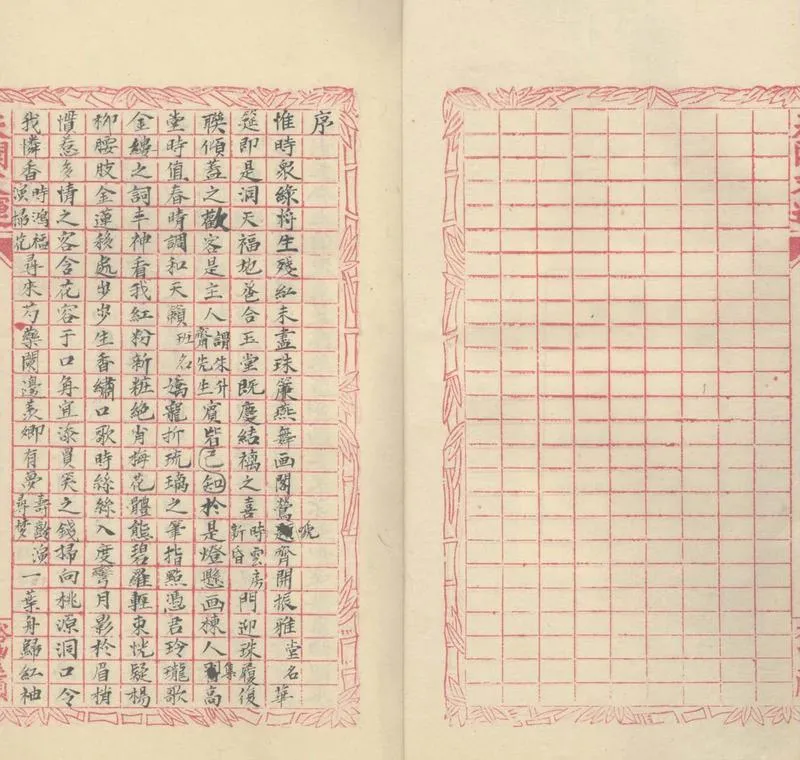 序
惟時衆綠將生殘紅未盡珠簾燕舞画閣鶯號齊開振雅堂名華
筵即是洞天福地巹合玉堂既慶結褵之喜時雲房新昏門迎珠履後
聯傾蓋之歡客是主人謂朱升齋先生賓皆已於是燈懸画棟人集高
堂時值春晴調和天籟班名嬌寵折琉璃之筆指點憑君玲瓏歌
金縷之詞丰神看我紅粉新粧絕肖梅花體態碧羅輕束恍疑楊
柳腰肢金蓮移處步步生香繡口歌時絲絲入度月影於眉梢
惜惹多情之客含花容于口角宜添買笑之錢掃向桃源洞口令
我憐香時鴻福演掃花尋來芍藥闌邊羨卿有夢壽齡演尋梦一葉舟歸紅袖